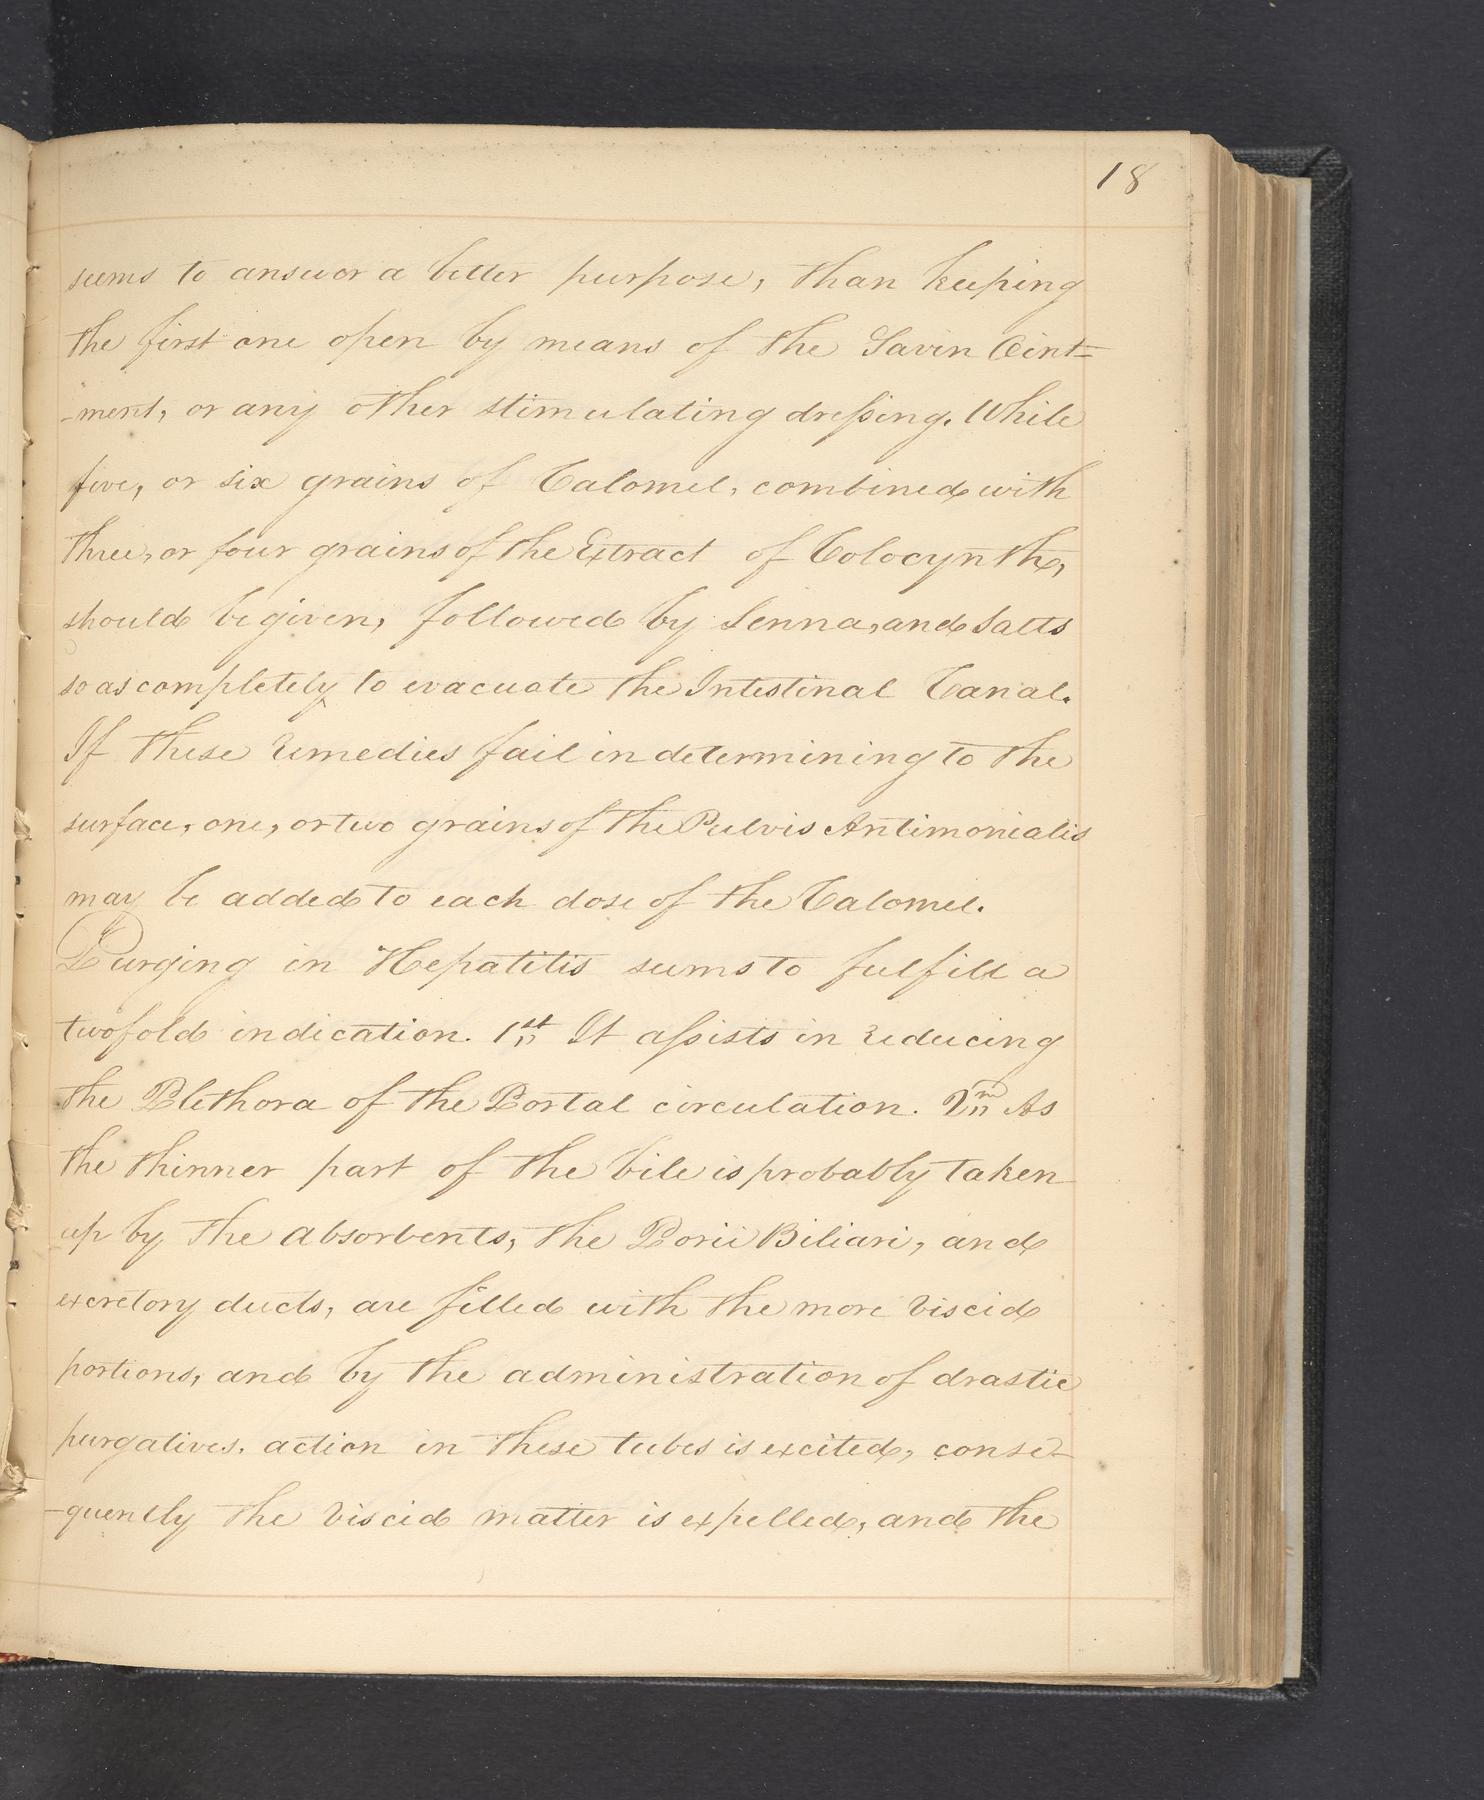 18
seems to answer a better purpose, than keeping
the first one open by means of the Savin Oint=
-ment, or any other stimulating dressing. While
five, or six grains of Calomel, combined with
three, or four grains of the Extract of Colocynth,
should be given, followed by Senna, and Salts
so as completely to evacuate the Intestinal Canal.
If these remedies fail in determining to the
surface, one, or two grains of the Pulvis Antimonialis
may be added to each dose of the Calomel.
Purging in Hepatitis seems to fulfill a
twofold indication. 1st It assists in reducing
the Plethora of the Portal circulation. 2nd As
the thinner part of the bile is probably taken
up by the absorbents, the Porii Biliari, and
excretory ducts, are filled with the more viscid
portions, and by the administration of drastic
purgatives, action in these tubes is excited, conse-
-quently the viscid matter is expelled, and the